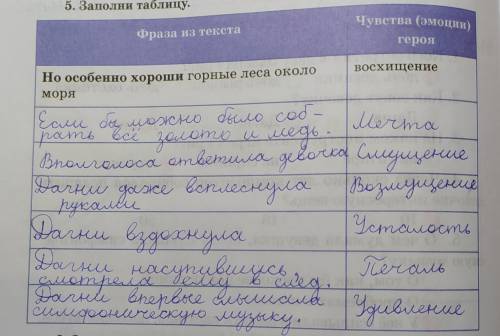 5. Заполни таблицу.
Фраза из текста
Чувства (эмоции)
героя
Но особенно хороши горные леса около
моря
восхищение
Если бы можно было соб-
рать всё золото и медь.
Мечта
Вполголоса ответила девочка
Смущение
Дагни даже всплеснула
руками
Возмущение
Дагни вздохнула
Усталость
Дагни насупившись,
смотрела ему в след.
Печаль
Дагни впервые слышала
симфоническую музыку.
Удивление